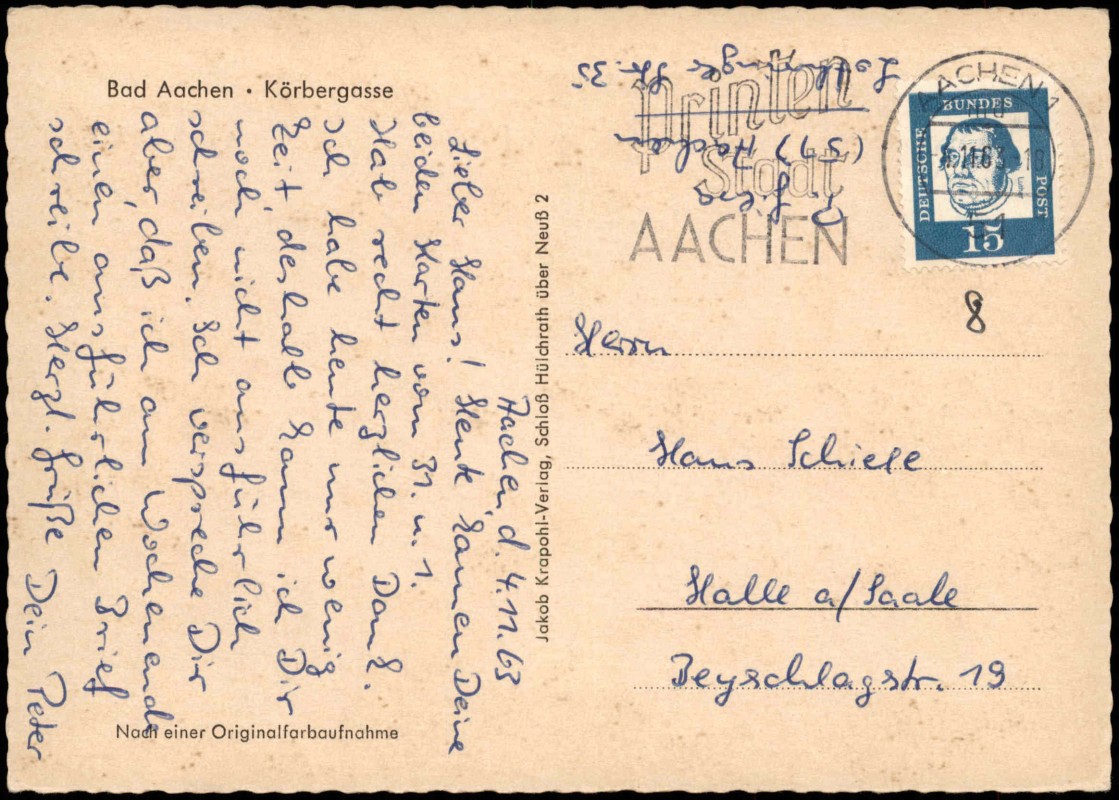 Bad Aachen • Körbergasse
Aachen, d. 4.11.63
Lieber Hans! Heute kamen Deine
beiden Karten vom 31. u. 1.
Hab recht herzlichen Dank.
Ich habe heute nur wenig
Zeit, deshalb kann ich Dir
noch nicht ausführlich
schreiben. Ich verspreche Dir
aber, daß ich am Wochenende
einen ausführlichen Brief
schreibe. Herzl. Grüße Dein Peter
Nach einer Originalfarbaufnahme
Jakob Krapohl-Verlag, Schloß Hülchrath über Neuß 2
(51) Aachen
Lothringer Str. 35
Printen
Stadt
AACHEN
AACHEN 1
11.63-18
DEUTSCHE
BUNDES
POST
15
8
Herrn
Hans Schiele
Halle a/Saale
Beyschlagstr. 19